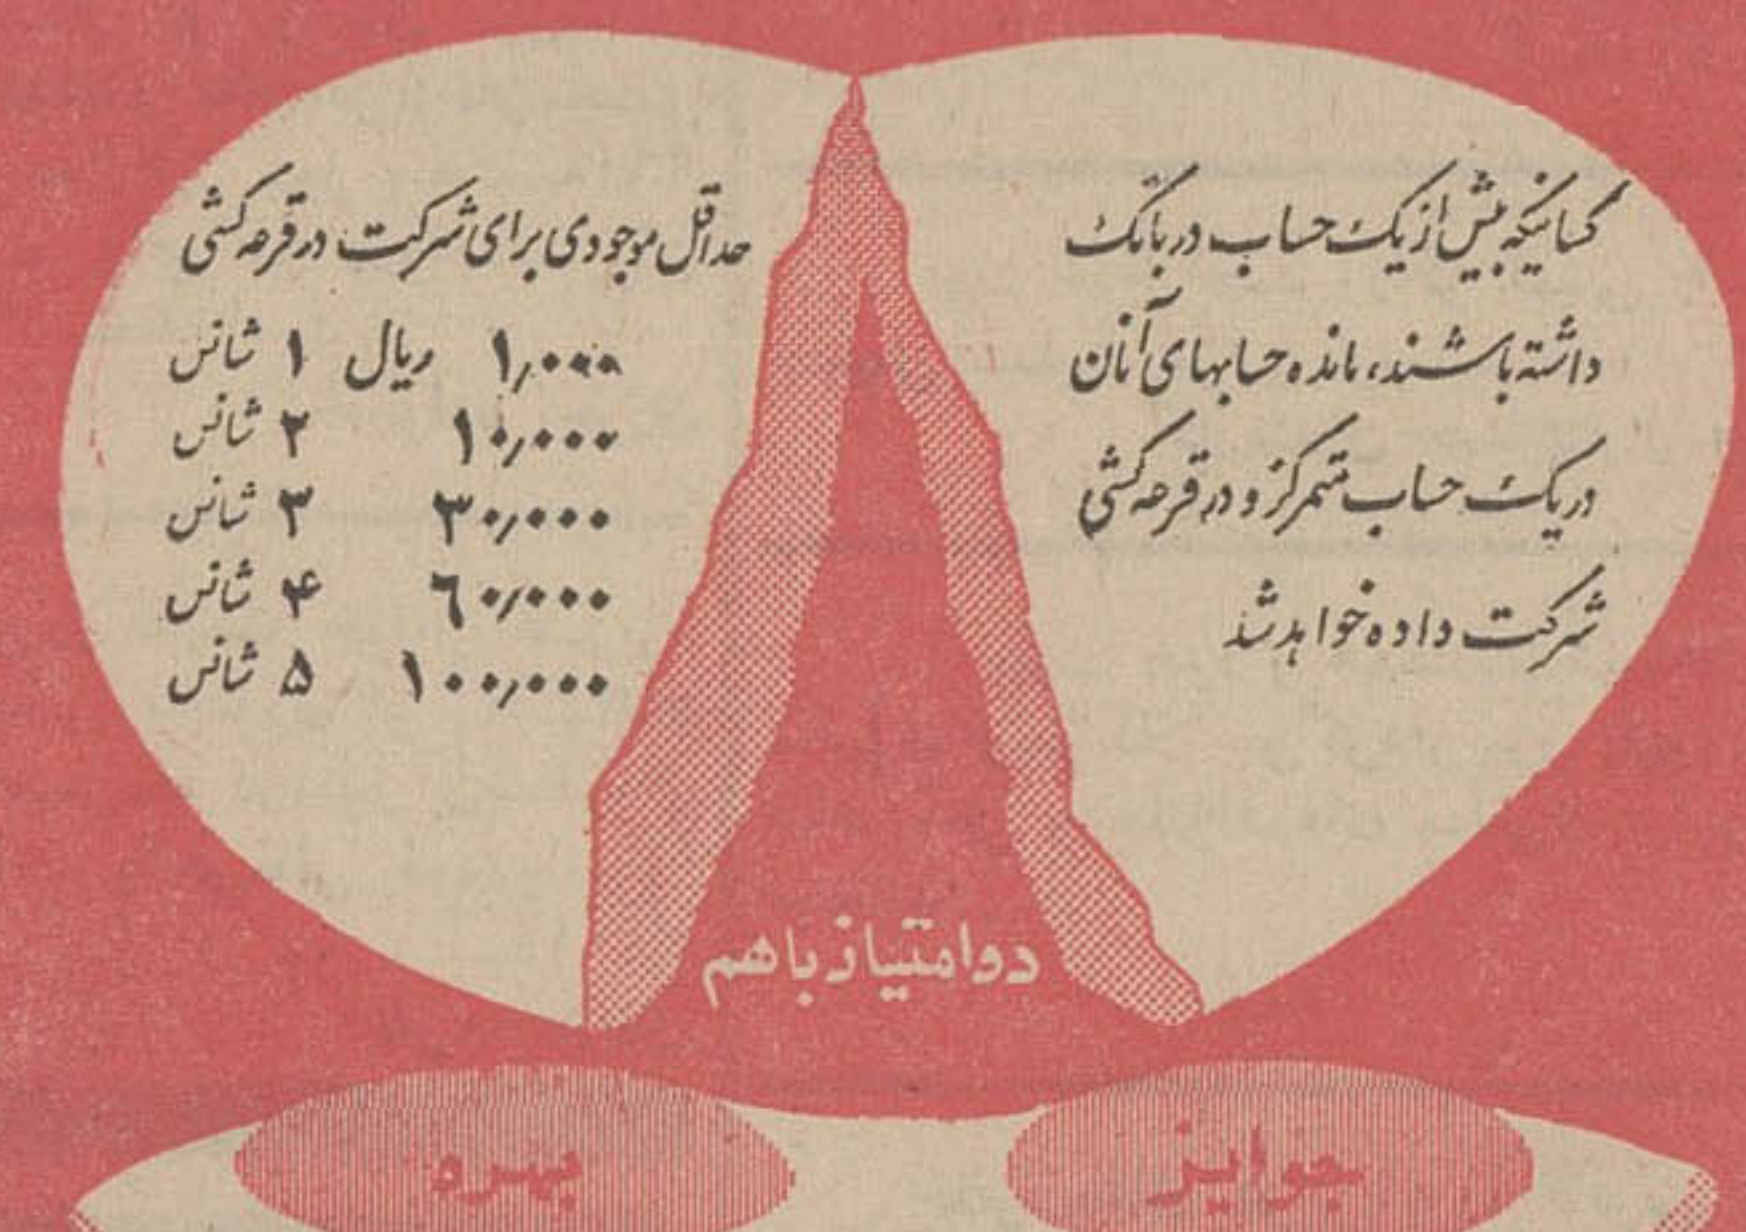 کسانیکه بیش از یک حساب در بانک
داشته باشند، مانده حسابهای آنان
در یک حساب متمرکز و در قرعه کشی
شرکت داده خواهد شد
حداقل موجودی برای شرکت در قرعه کشی
۱٫۰۰۰ ریال ۱ شانس
۱۰٫۰۰۰ ۲ شانس
۳۰٫۰۰۰ ۳ شانس
۶۰٫۰۰۰ ۴ شانس
۱۰۰٫۰۰۰ ۵ شانس
دو امتیاز با هم
جوایز
بهره